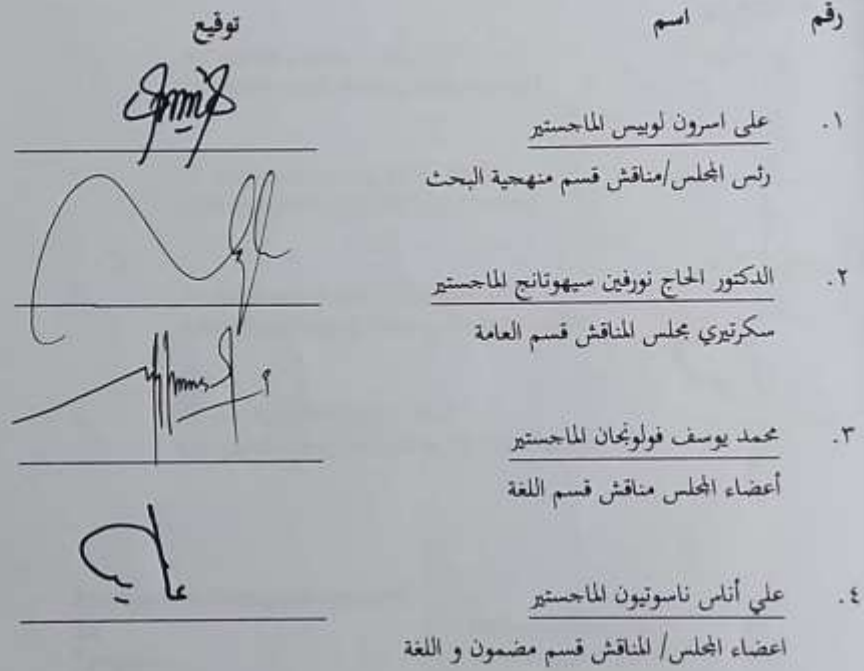 رقم اسم توقيع
١. على اسرون لوبيس الماجستير
رئس المجلس/مناقش قسم منهجية البحث
٢. الدكتور الحاج نورفين سيهوتانج الماجستير
سكرتيري مجلس المناقش قسم العامة
٣. محمد يوسف فولونجان الماجستير
أعضاء المجلس مناقش قسم اللغة
٤. علي أناس ناسوتيون الماجستير
اعضاء المجلس/ المناقش قسم مضمون و اللغة